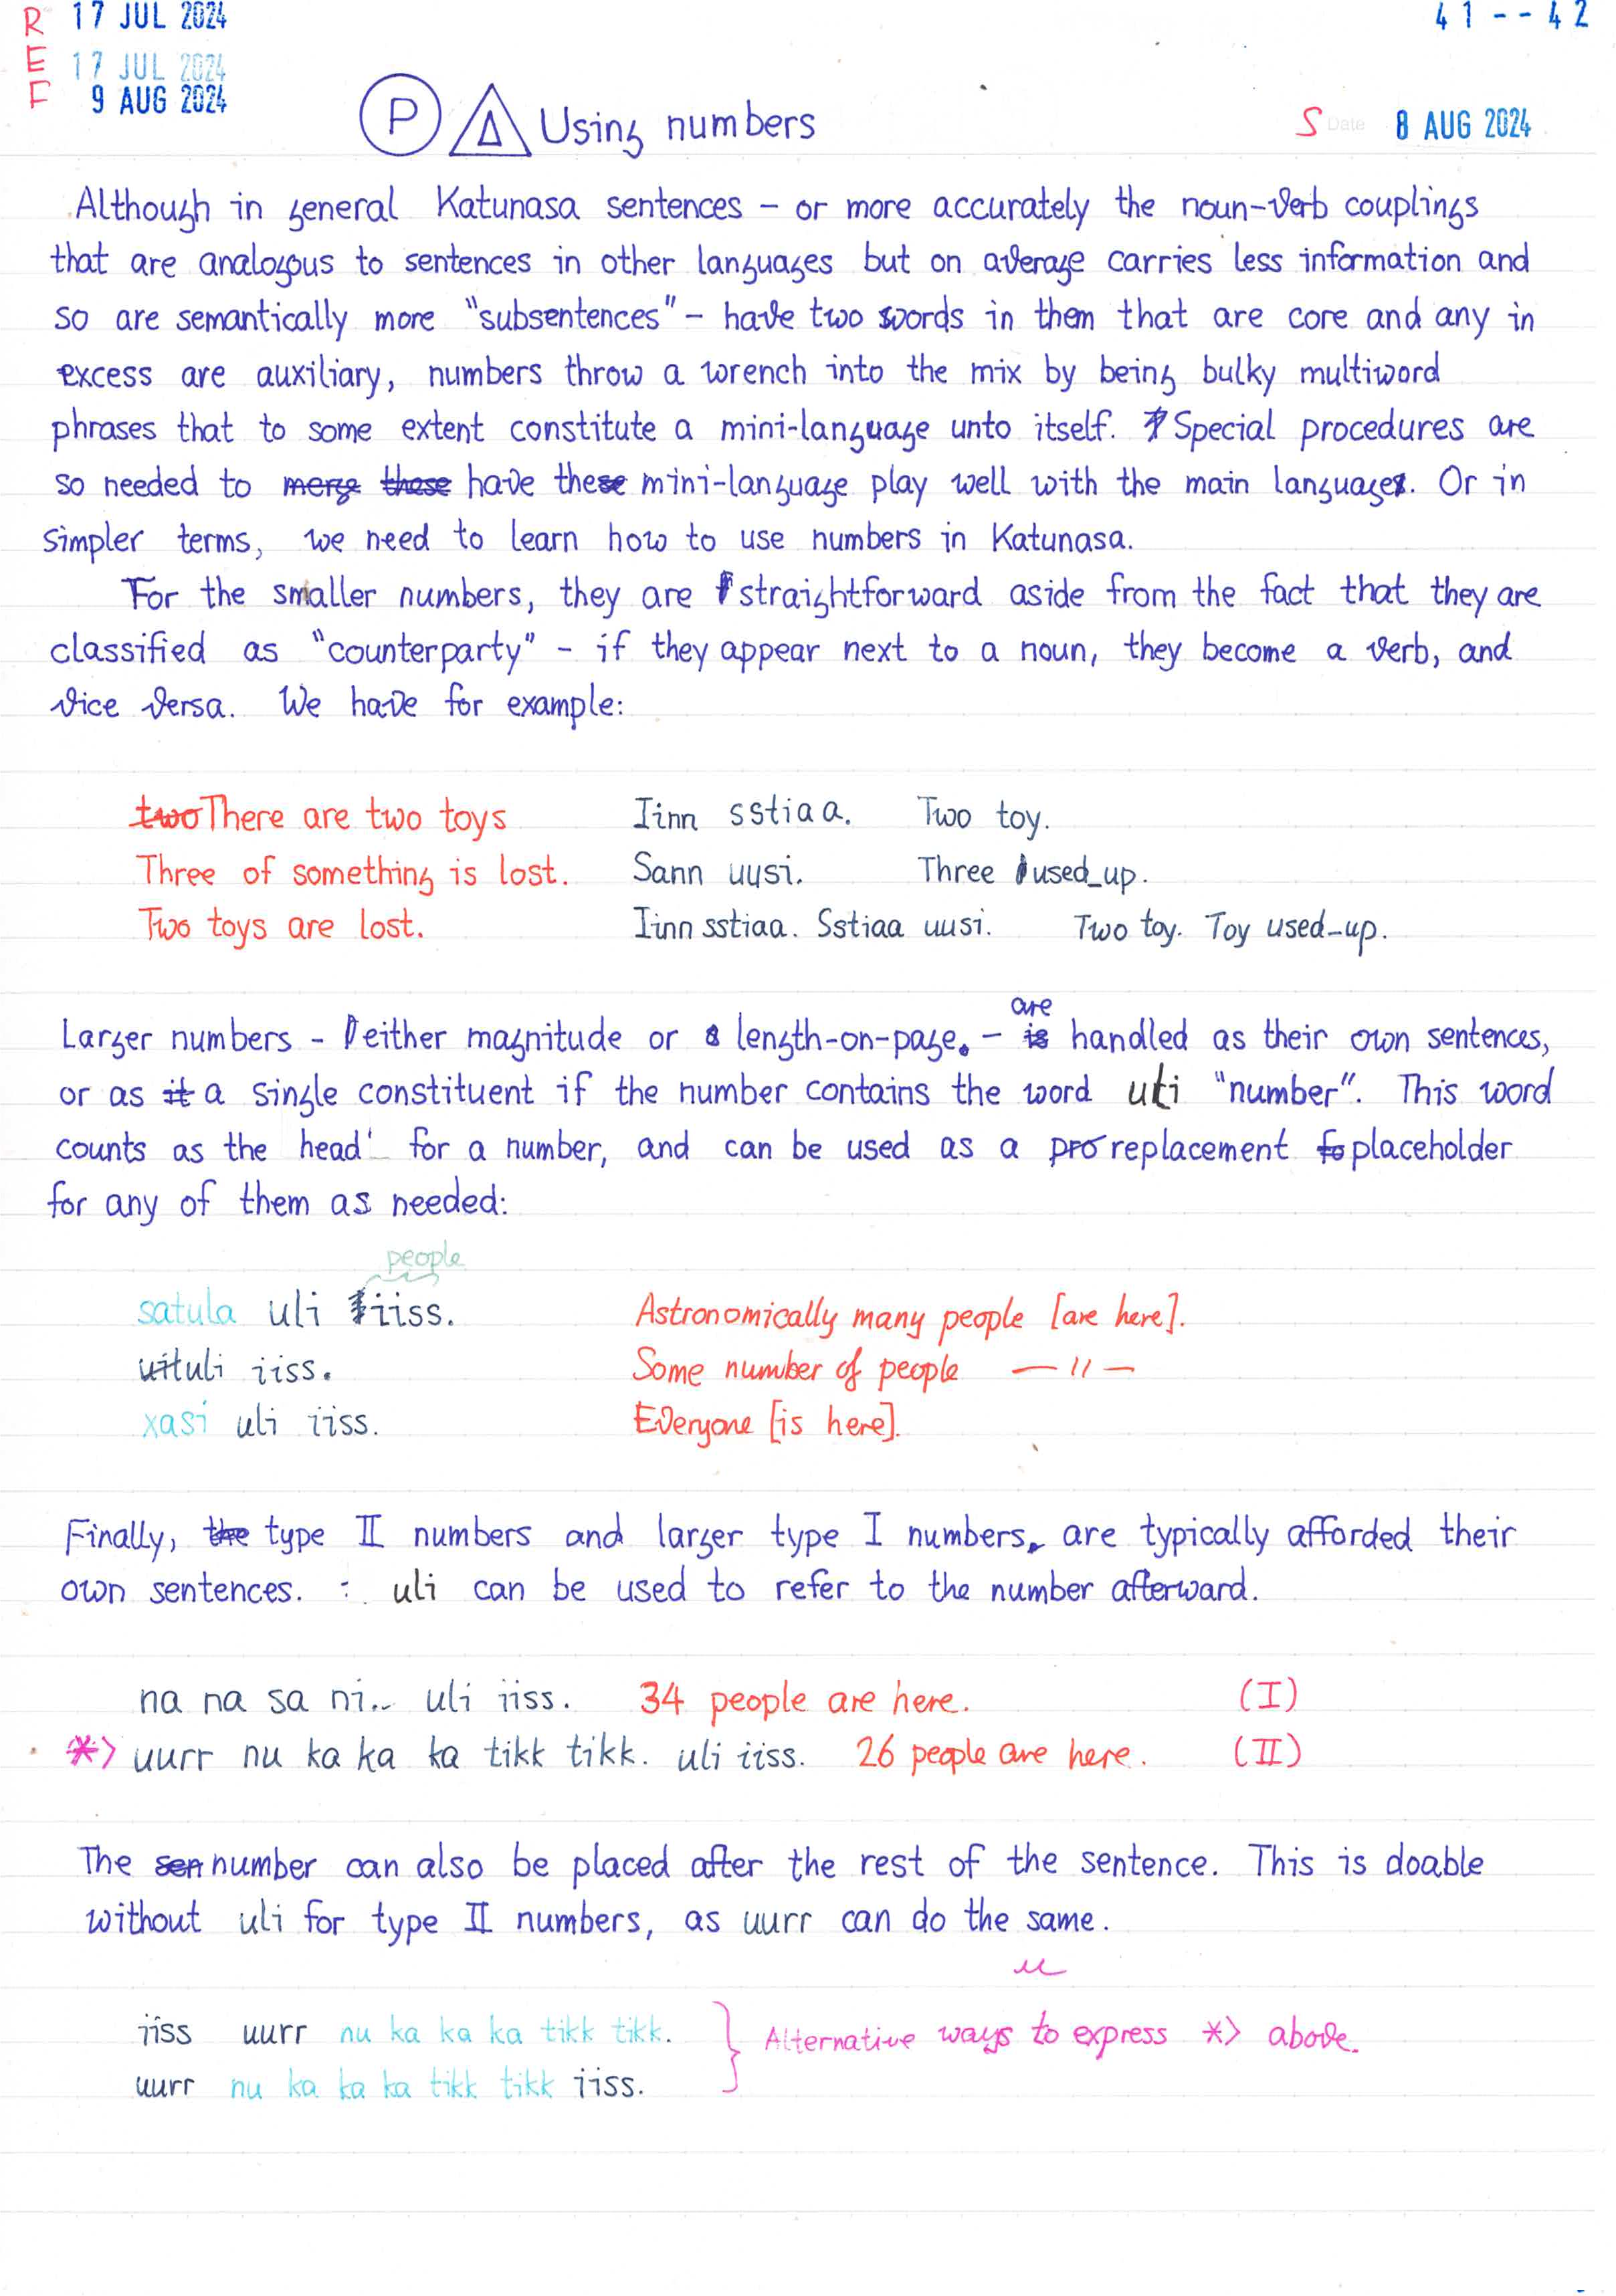 REF 17 JUL 2024
17 JUL 2024
9 AUG 2024
41--42
P Δ Using numbers
S Date 8 AUG 2024
Although in general Katunasa sentences – or more accurately the noun-verb couplings
that are analogous to sentences in other languages but on average carries less information and
so are semantically more "subsentences" – have two words in them that are core and any in
excess are auxiliary, numbers throw a wrench into the mix by being bulky multiword
phrases that to some extent constitute a mini-language unto itself. Special procedures are
so needed to merge these have these mini-language play well with the main language. Or in
simpler terms, we need to learn how to use numbers in Katunasa.
For the smaller numbers, they are straightforward aside from the fact that they are
classified as "counterparty" – if they appear next to a noun, they become a verb, and
vice versa. We have for example:
two There are two toys Iinn sstiaa. Two toy.
Three of something is lost. Sann uusi. Three used_up.
Two toys are lost. Iinn sstiaa. Sstiaa uusi. Two toy. Toy used_up.
are
Larger numbers – either magnitude or length-on-page. – is handled as their own sentences,
or as it a single constituent if the number contains the word uli "number". This word
counts as the head for a number, and can be used as a pro replacement fo placeholder
for any of them as needed:
people
satula uli iiss. Astronomically many people [are here].
uit uli iiss. Some number of people — 〃 —
xasi uli iiss. Everyone [is here].
Finally, the type II numbers and larger type I numbers, are typically afforded their
own sentences. uli can be used to refer to the number afterward.
na na sa ni. uli iiss. 34 people are here. (I)
*> uurr nu ka ka ka tikk tikk. uli iiss. 26 people are here. (II)
The sen number can also be placed after the rest of the sentence. This is doable
without uli for type II numbers, as uurr can do the same.
iiss uurr nu ka ka ka tikk tikk. } Alternative ways to express *> above.
uurr nu ka ka ka tikk tikk iiss.